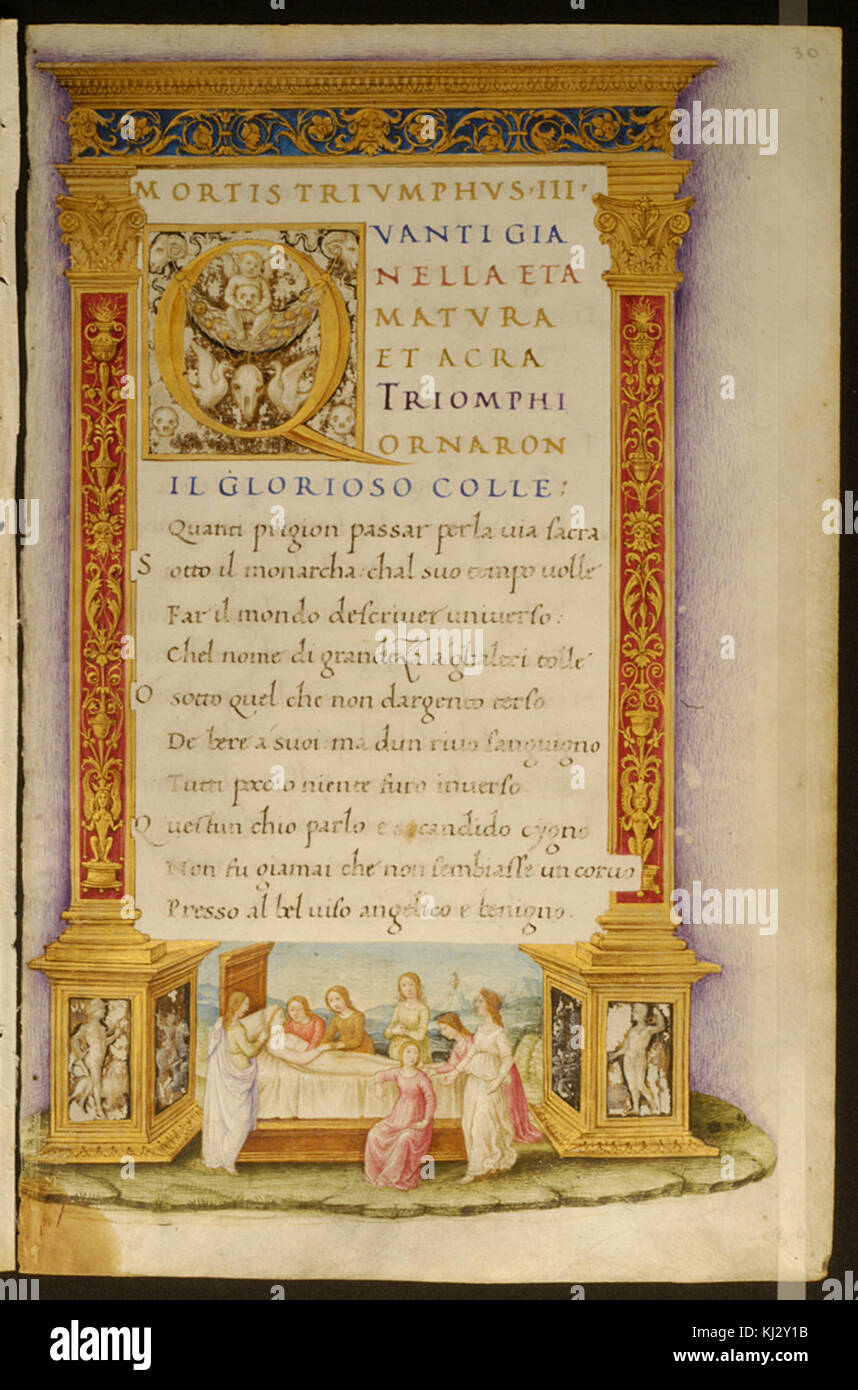 30
MORTIS TRIVMPHVS·III·
QVANTI GIA
NELLA ETA
MATVRA
ET ACRA
TRIOMPHI
ORNARON
IL GLORIOSO COLLE:
Quanti prigion passar per la uia sacra
Sotto il monarcha: chal suo tempo uolle
Far il mondo descriuer uniuerso:
Chel nome di grandeza agli altri tolle
O sotto quel che non dargento terso
De bere a suoi: ma dun riuo sanguigno
Tutti poco o niente furo inuerso
Questun chio parlo e si candido cygno
Non fu giamai che non sembiasse un coruo
Presso al bel uiso angelico e benigno.
alamy
alamy
Image ID: KJ2Y1B
www.alamy.com